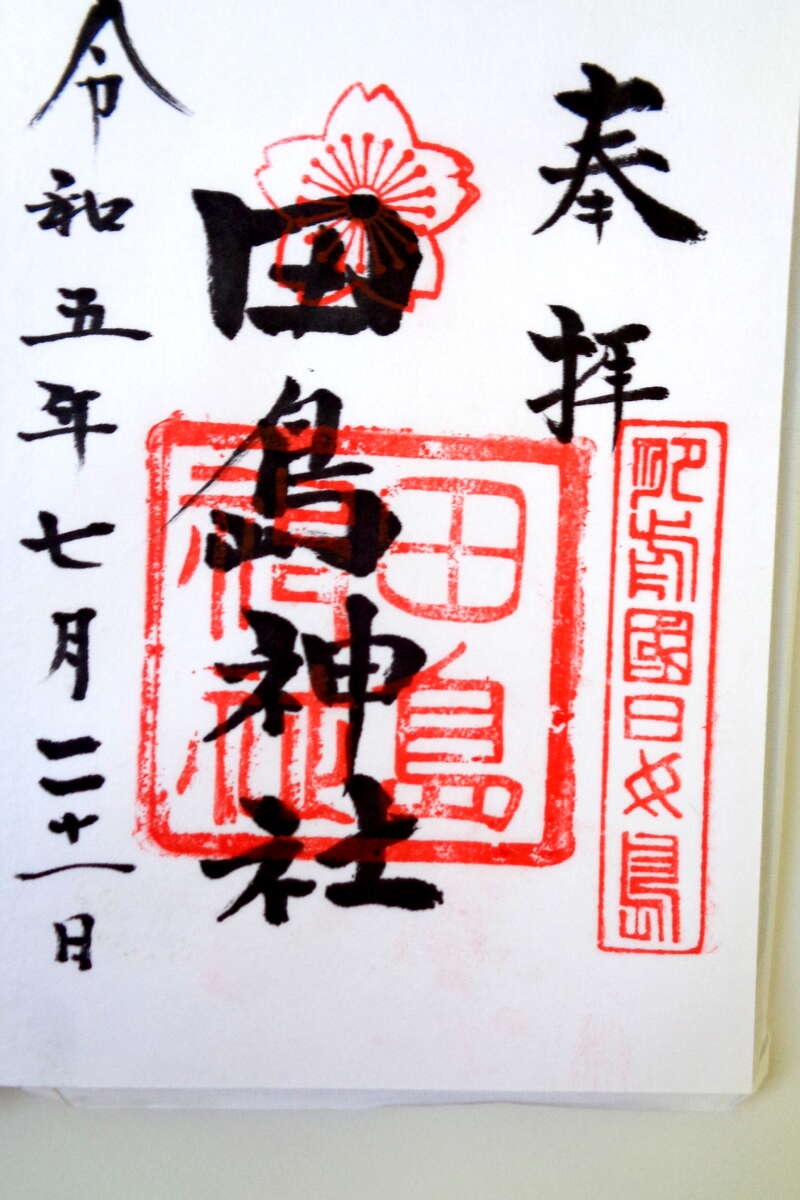 奉拝
肥前國日女島
田島神社
田島
神社
令和五年七月二十一日